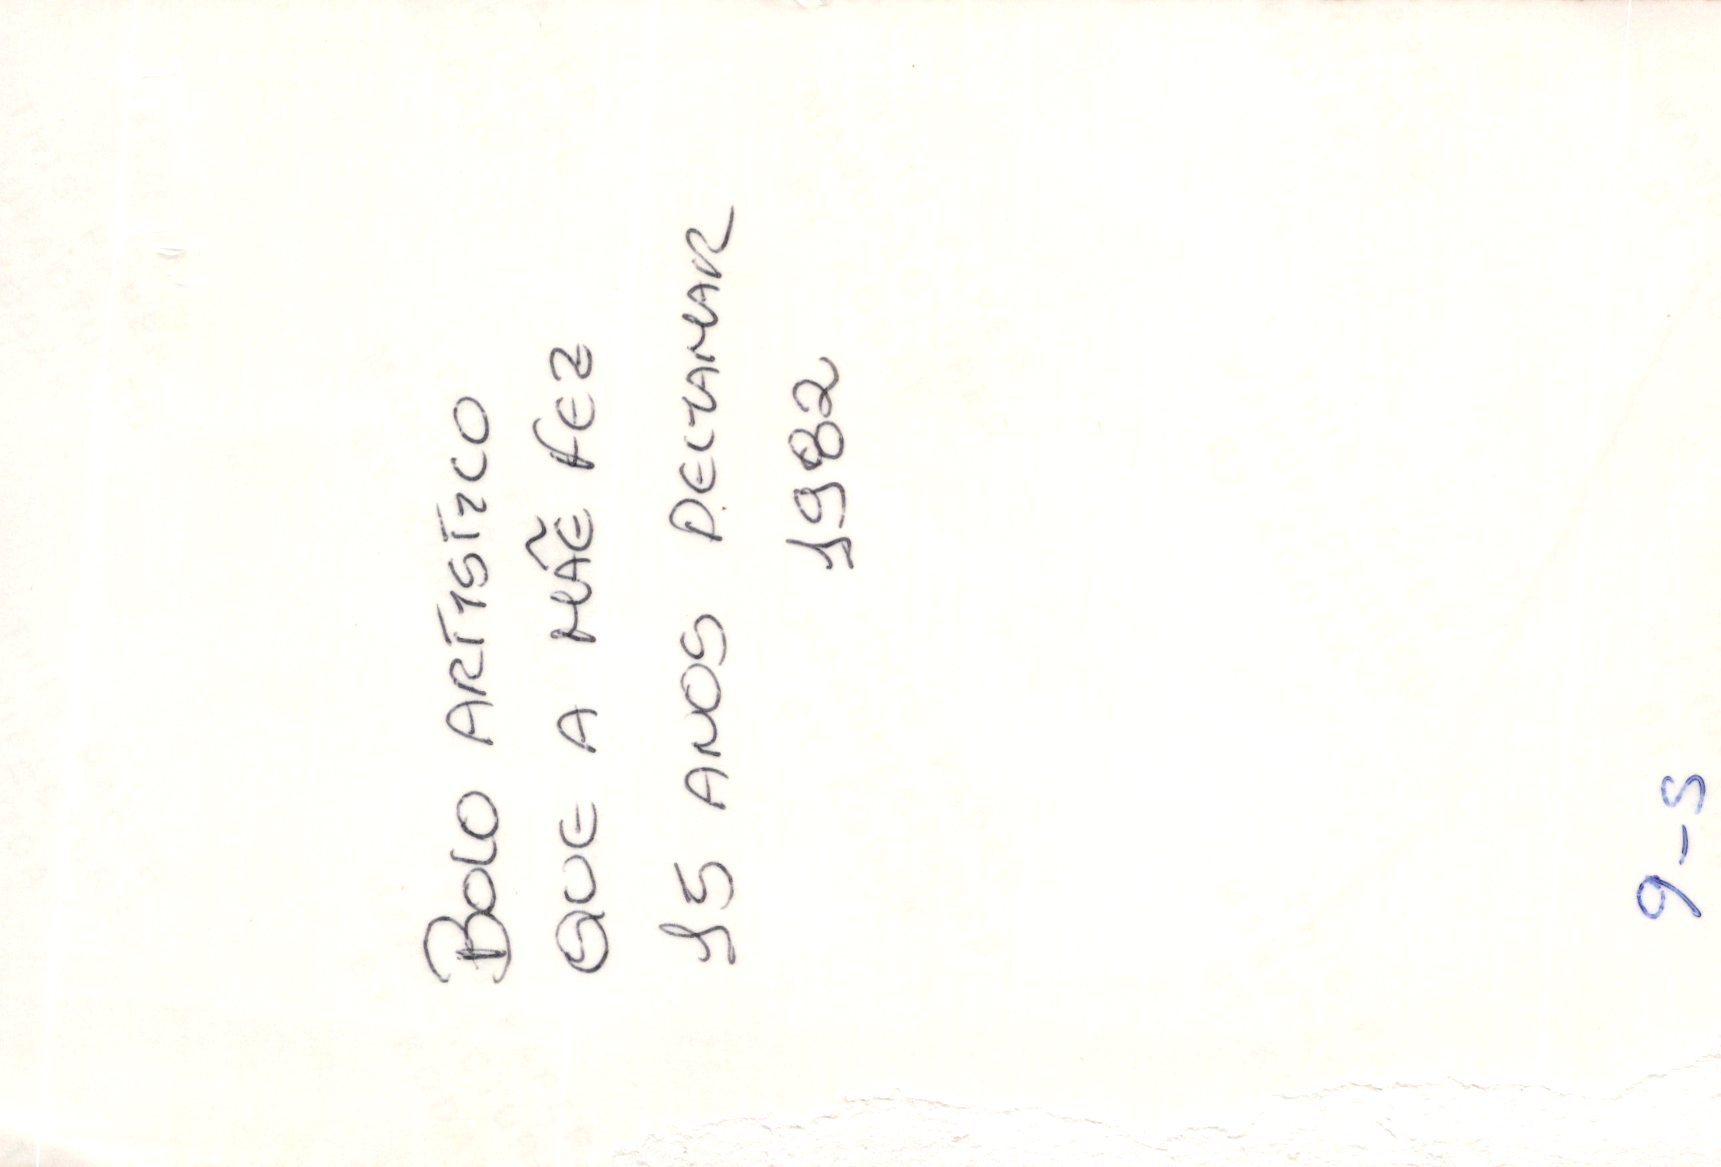 BOLO ARTÍSTICO
QUE A MÃE FEZ
15 ANOS
1982
9-5